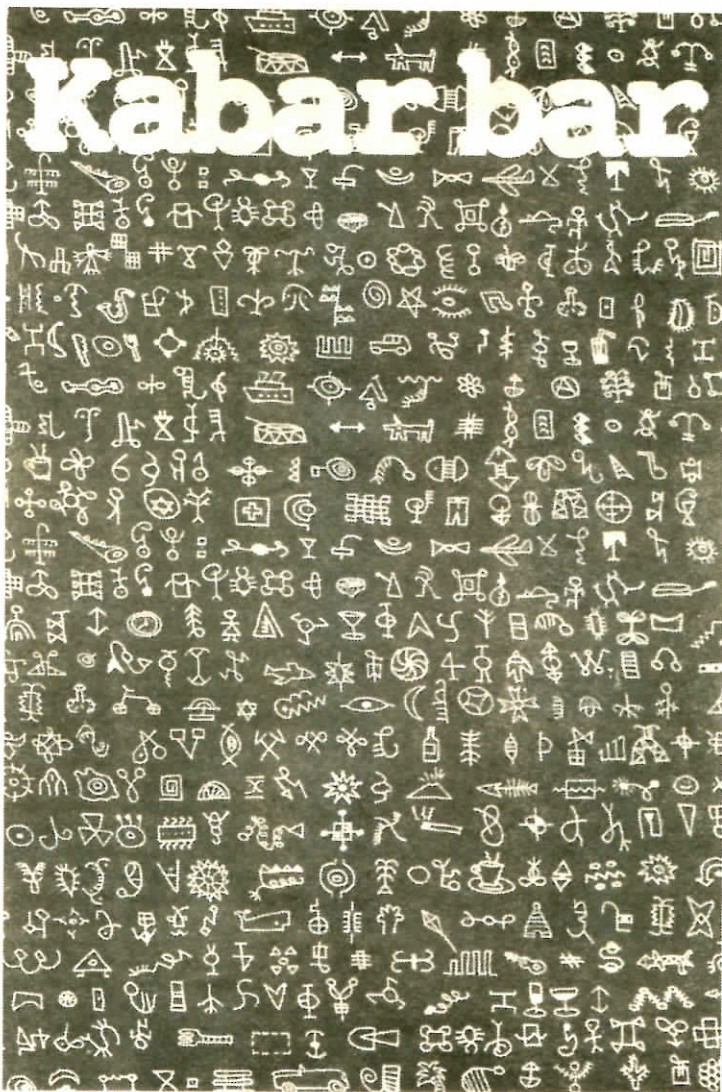 Kabar bar